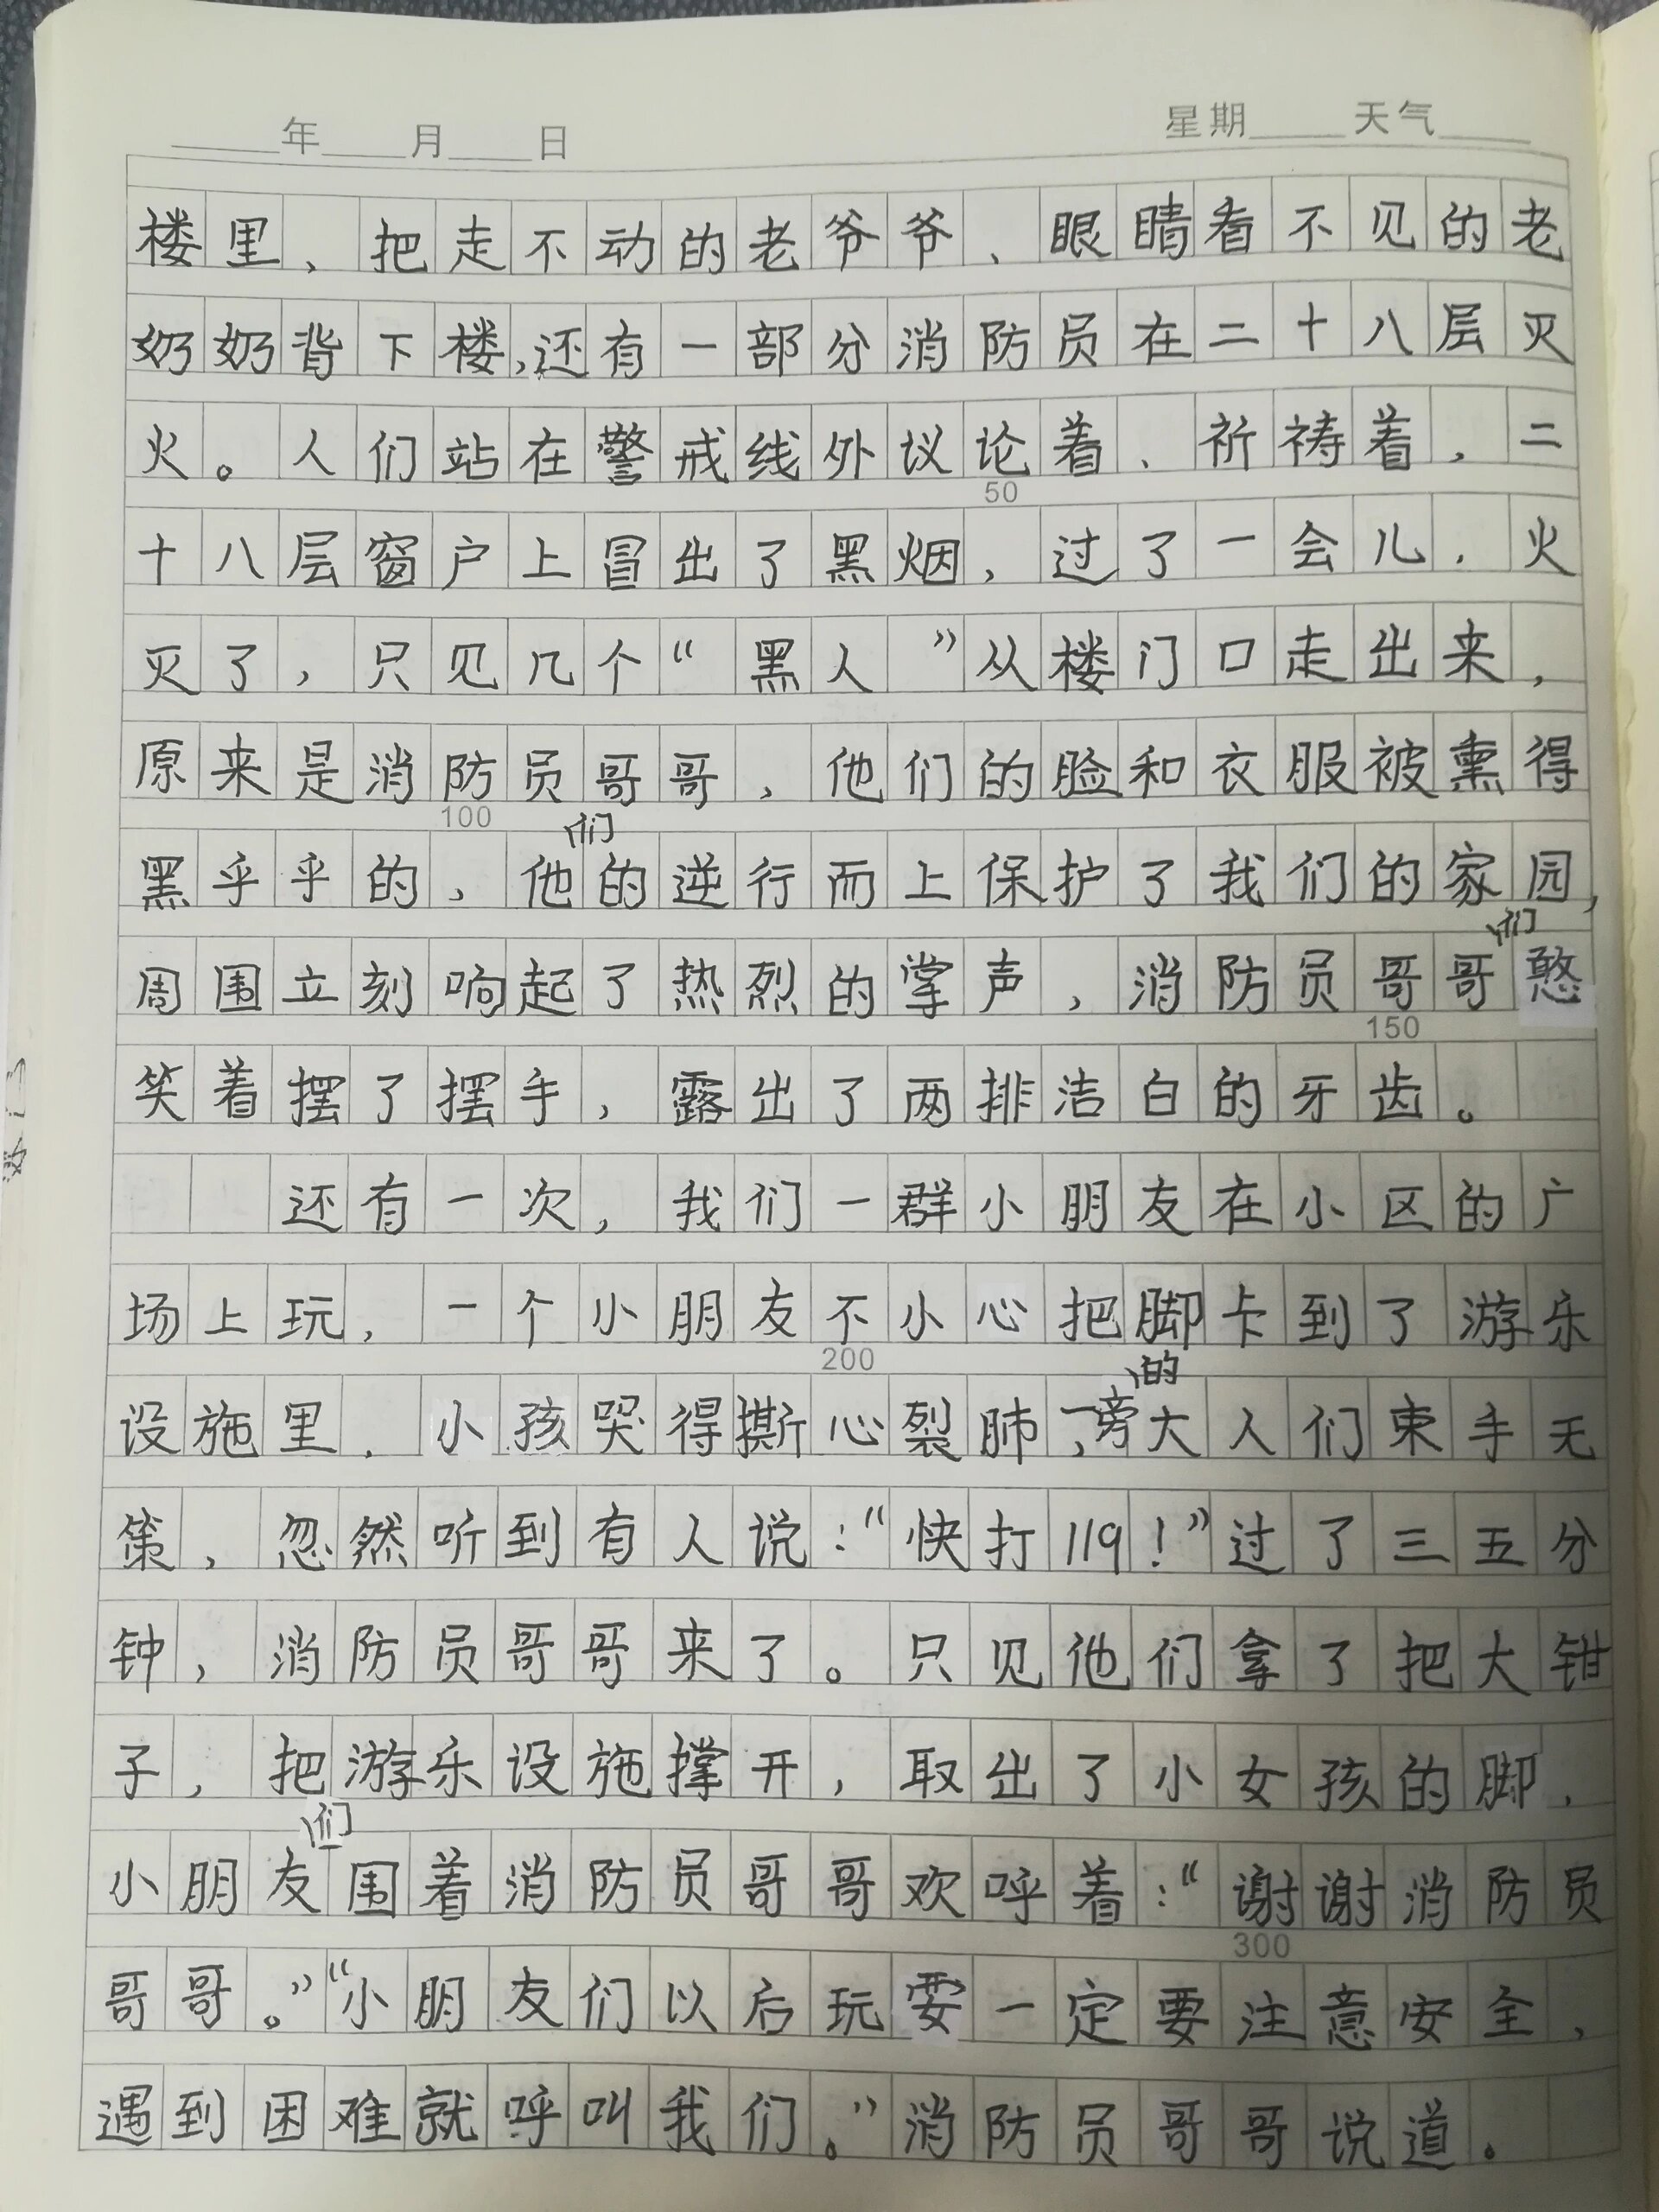 ____年____月____日 星期____天气____
楼里，把走不动的老爷爷、眼睛看不见的老
奶奶背下楼，还有一部分消防员在二十八层灭
火。人们站在警戒线外议论着、祈祷着，二
50
十八层窗户上冒出了黑烟，过了一会儿，火
灭了，只见几个“黑人”从楼门口走出来，
原来是消防员哥哥，他们的脸和衣服被熏得
100
黑乎乎的，他们的逆行而上保护了我们的家园，
周围立刻响起了热烈的掌声，消防员哥哥们憨
150
笑着摆了摆手，露出了两排洁白的牙齿。
还有一次，我们一群小朋友在小区的广
场上玩，一个小朋友不小心把脚卡到了游乐
200
设施里，小孩哭得撕心裂肺，一旁的大人们束手无
策，忽然听到有人说：“快打119！”过了三五分
钟，消防员哥哥来了。只见他们拿了把大钳
子，把游乐设施撑开，取出了小女孩的脚，
小朋友们围着消防员哥哥欢呼着：“谢谢消防员
300
哥哥。”“小朋友们以后玩耍一定要注意安全，
遇到困难就呼叫我们。”消防员哥哥说道。